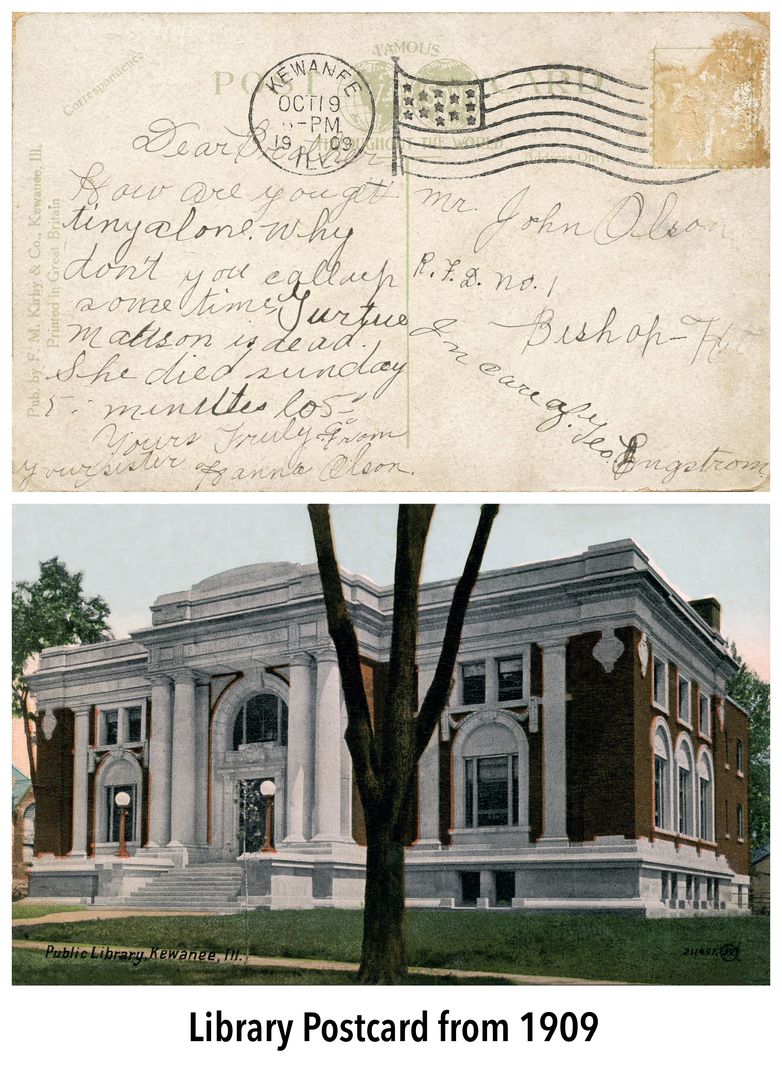 FAMOUS
POST CARD
THROUGHOUT THE WORLD
Correspondence
KEWANEE
OCT 19
-PM
19 09
ILL.
Dear Brother
How are you get
ting alone. Why
don't you call up
some time.
Mattson is dead.
She died sunday
5: minutes to 5-
Yours Truly From
your sister Hanna Olson.
Mr. John Olson
R.F.D. No. 1
Bishop-Hill
In care of. Geo. Engstrom
Pub. by F. M. Kirby & Co., Kewanee, Ill.
Printed in Great Britain
Public Library, Kewanee, Ill.
211491 JV
Library Postcard from 1909